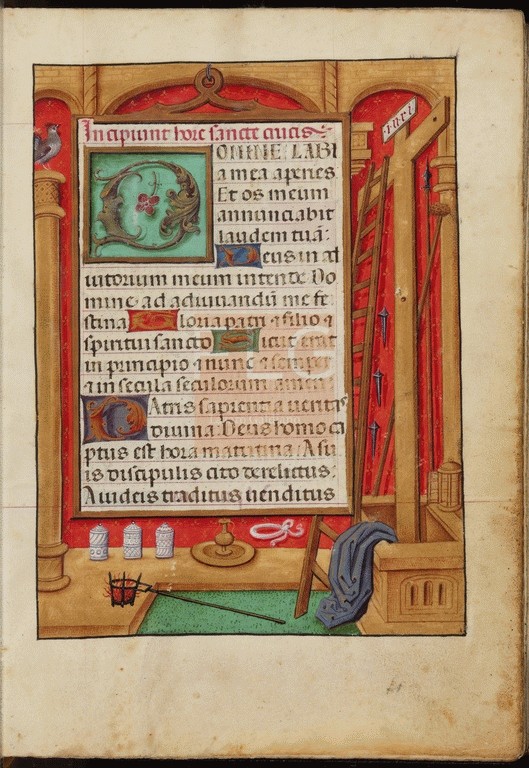 Incipiunt hore sancte crucis
DOMINE LABI
a mea aperies
Et os meum
annunciabit
laudem tuã:
Deus in ad
iutorium meum intende Do
mine ad adiuuandũ me fe
stina Gloria patri & filio &
spiritui sancto Sicut erat
in principio & nunc & semper
& in secula seculorum amen:
PAtris sapientia ueritas
diuina: Deus homo ca
ptus est hora matutina: A su
is discipulis cito derelictus:
A iudeis traditus uenditus
INRI